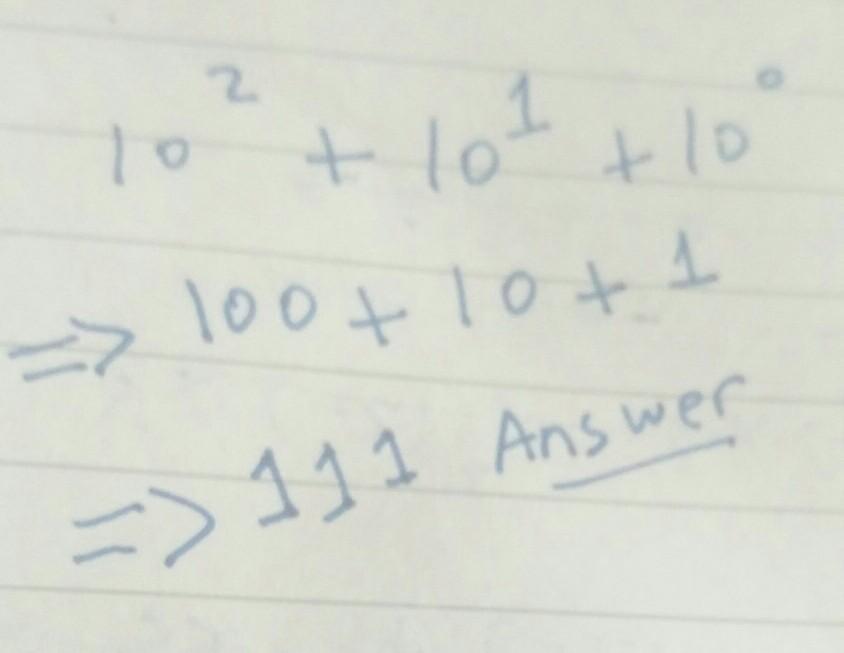 10² + 10¹ + 10⁰
⇒ 100 + 10 + 1
⇒ 111 Answer